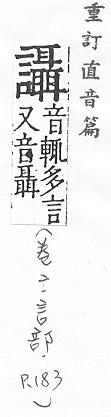 重訂直音篇
讘
音輒多言
又音聶
(卷二:言部.
P.183)